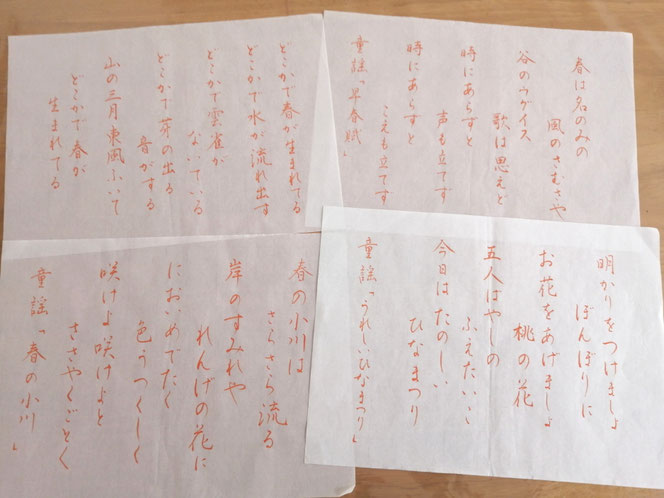 春は名のみの
風のさむさや
谷のウグイス
歌は思えど
時にあらずと
声も立てず
時にあらずと
こえも立てず
童謡「早春賦」
どこかで春が生まれてる
どこかで水が流れ出す
どこかで雲雀が
ないている
どこかで芽の出る
音がする
山の三月東風ふいて
どこかで春が
生まれてる
明かりをつけましょ
ぼんぼりに
お花をあげましょ
桃の花
五人ばやしの
ふえたいこ
今日はたのしい
ひなまつり
童謡「うれしいひなまつり」
春の小川は
さらさら流る
岸のすみれや
れんげの花に
においめでたく
色うつくしく
咲けよ咲けよと
ささやくごとく
童謡「春の小川」